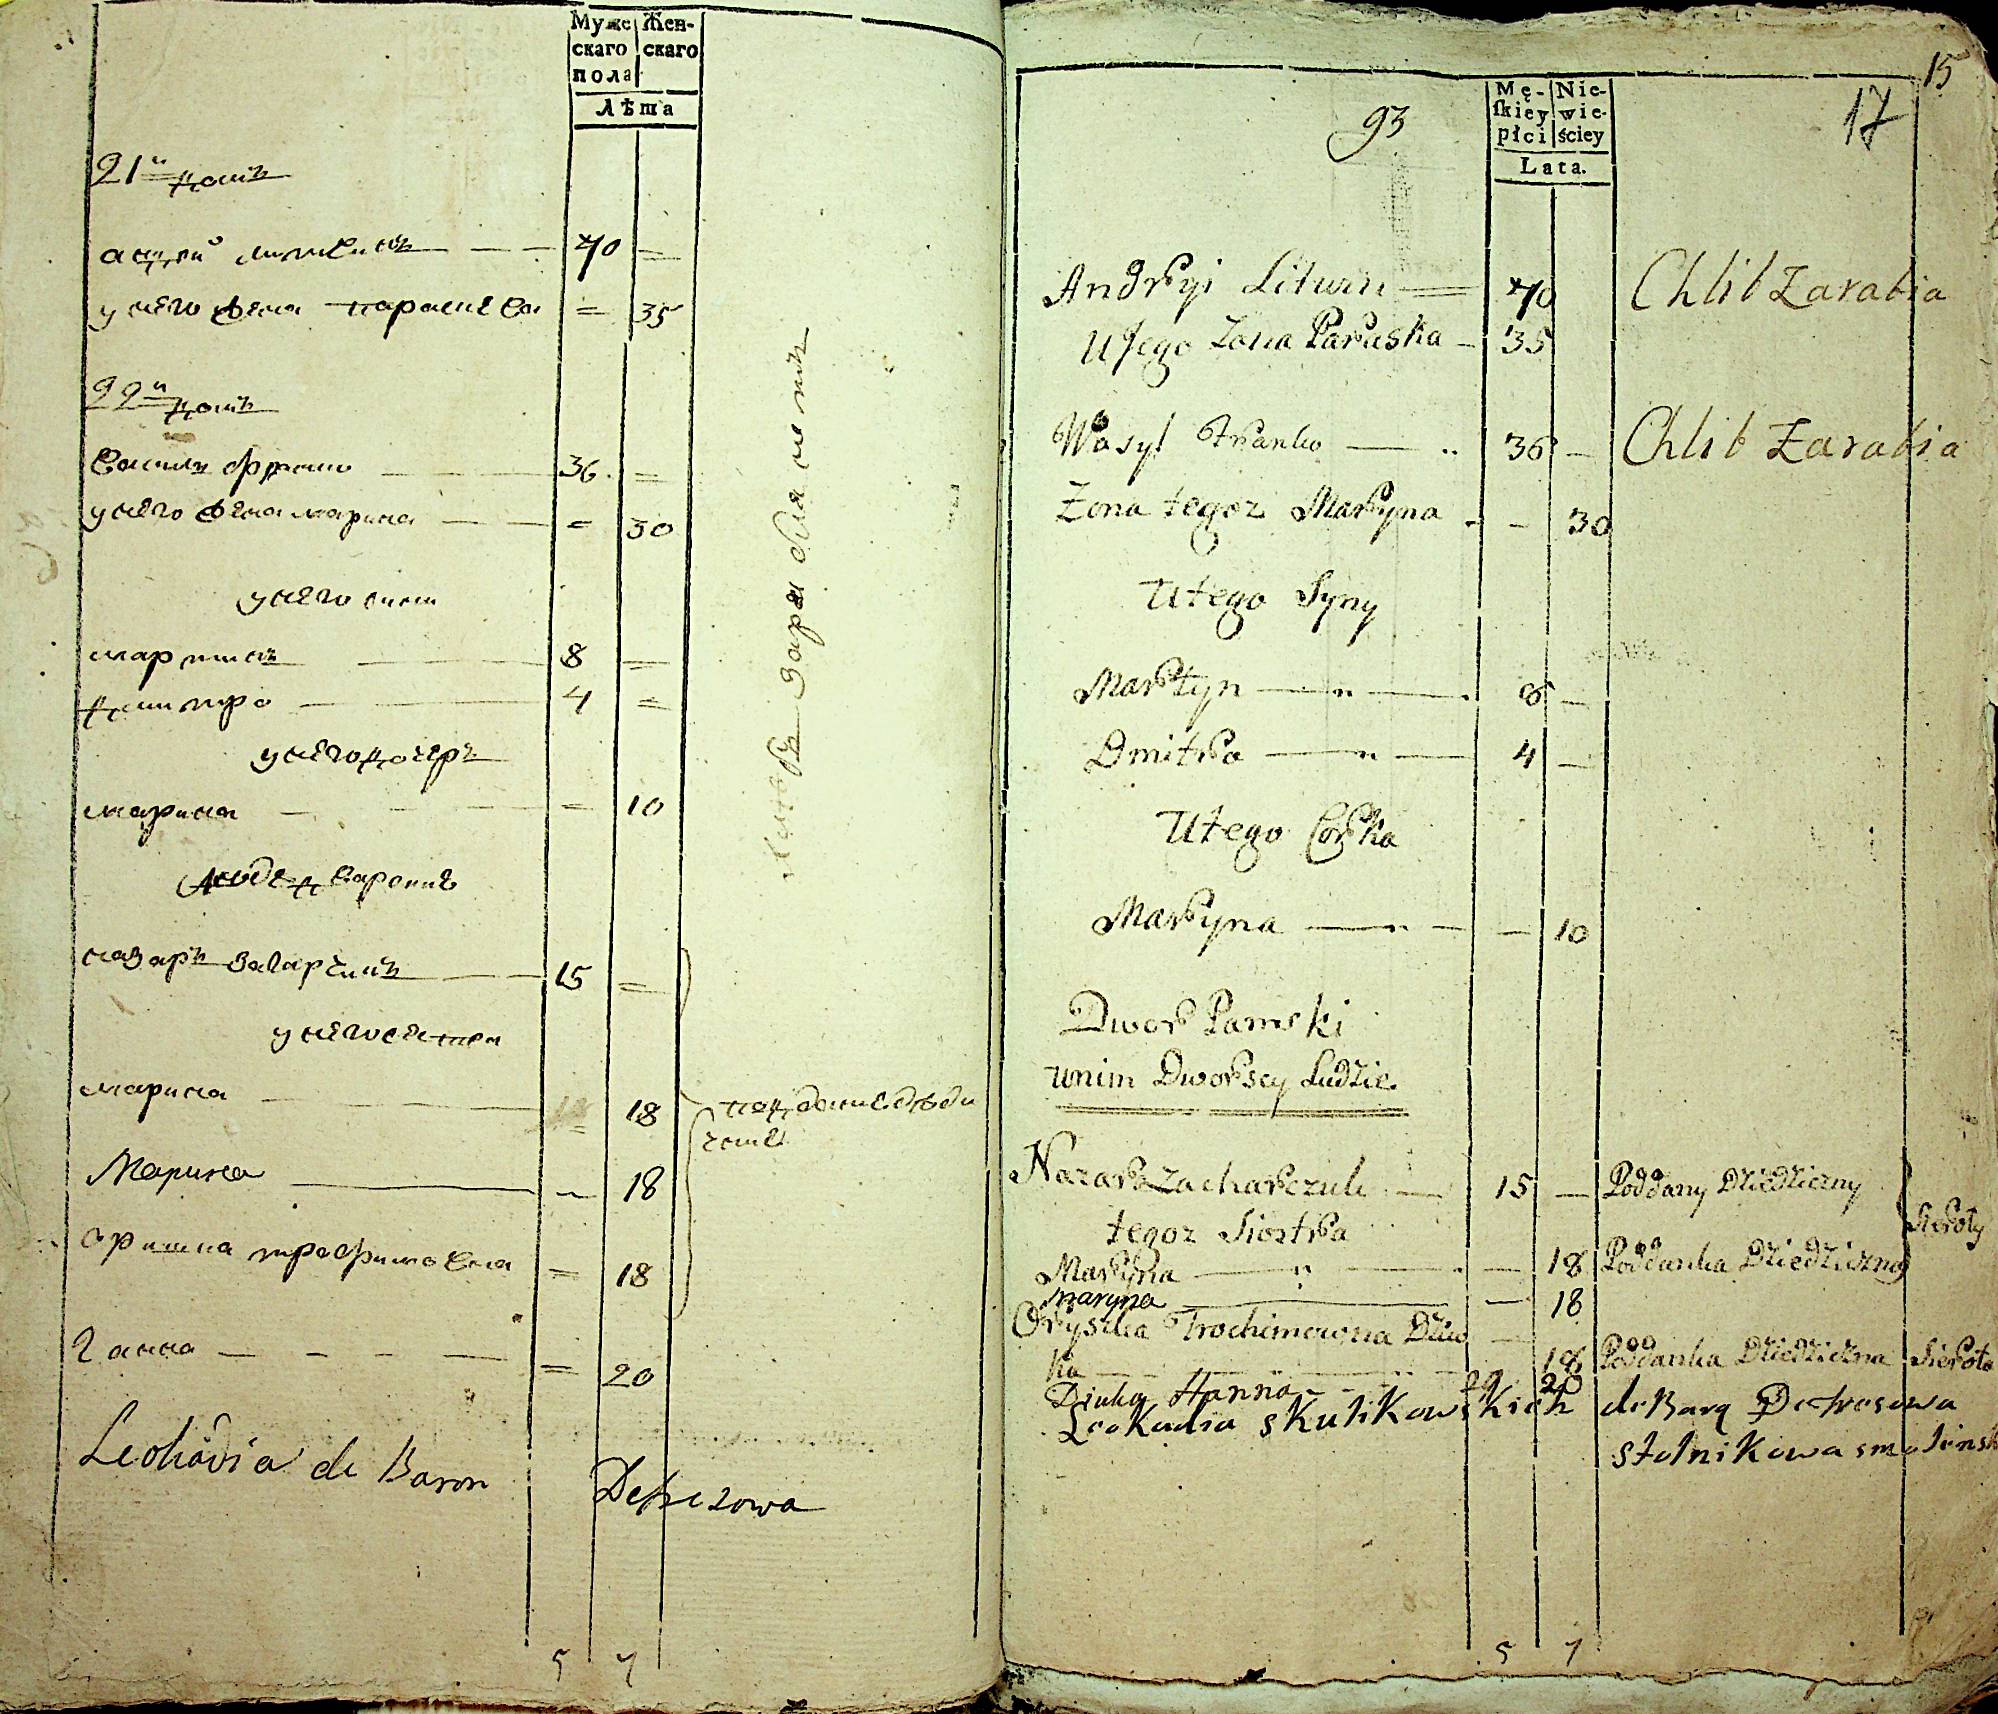 Муже
скаго
пола
Жен-
скаго
Лѣта
21й домъ
андрей литвинъ 70 =
у него жена параскева = 35
22й домъ
василь франко 36 =
у него жена марина = 30
у него сини
мартинъ 8 =
димитро 4 =
у него дочеръ
марина = 10
люде дворские
назаръ захарчукъ 15 =
у него сестра
марина = 18
Марина 18
оришка трофимовна = 18
ганна = 20
хлѣбъ зарабляетъ
Leokadia de Baron Detrezowa
5 7
15
93
17
Mę-
ſkiey
płci
Nie-
wie-
ściey
Lata.
Andryi Litwin 70 Chlib Zarabia
U Jego Zona Paraska 35
Wasyl Franko 36 Chlib Zarabia
Zona tegoz Maryna 30
U tego Syny
Martyn 8
Dmitro 4
U tego Corka
Maryna 10
Dwor Panski
u nim Dworscy Ludzie
Nazar Zacharczuk 15 Poddany Dziedziczny
tegoz Siostra Sieroty
Maryna 18 Poddanka Dziedziczna
Maryna 18
Oryszka Trochimowna Dziw
ka 18 Poddanka Dziedziczna Sierota
Dziwka Hanna 20
Leokadia Skutikowskich de Barą Detresowa
stolnikowa smolensk
5 7